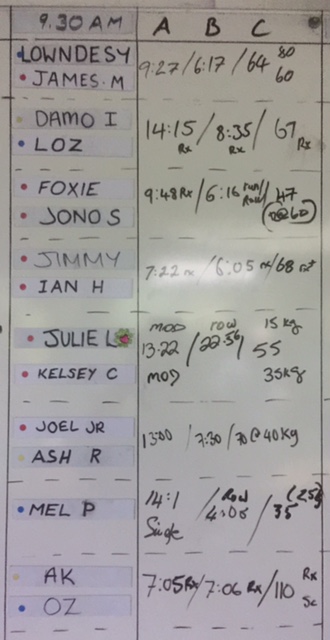 9.30 AM A B C
LOWNDESY 9:27/6:17/64 80
JAMES.M 60
DAMO I 14:15/8:35/67
LOZ Rx Rx Rx
FOXIE 9:48 Rx/6:16 run/ 47
JONO S Row @60
JIMMY 7:22 rx/6:05 rx/68 rx+
IAN H
mod row 15kg
JULIE L 13.22/22.56/55
KELSEY C mod 35kg
JOEL JR 13:00/7:30/70@40kg
ASH R
14:1 Row (25)
MEL P /4:08/35
Single
AK 7:05 Rx/7:06 Rx/110 Rx
OZ Sc